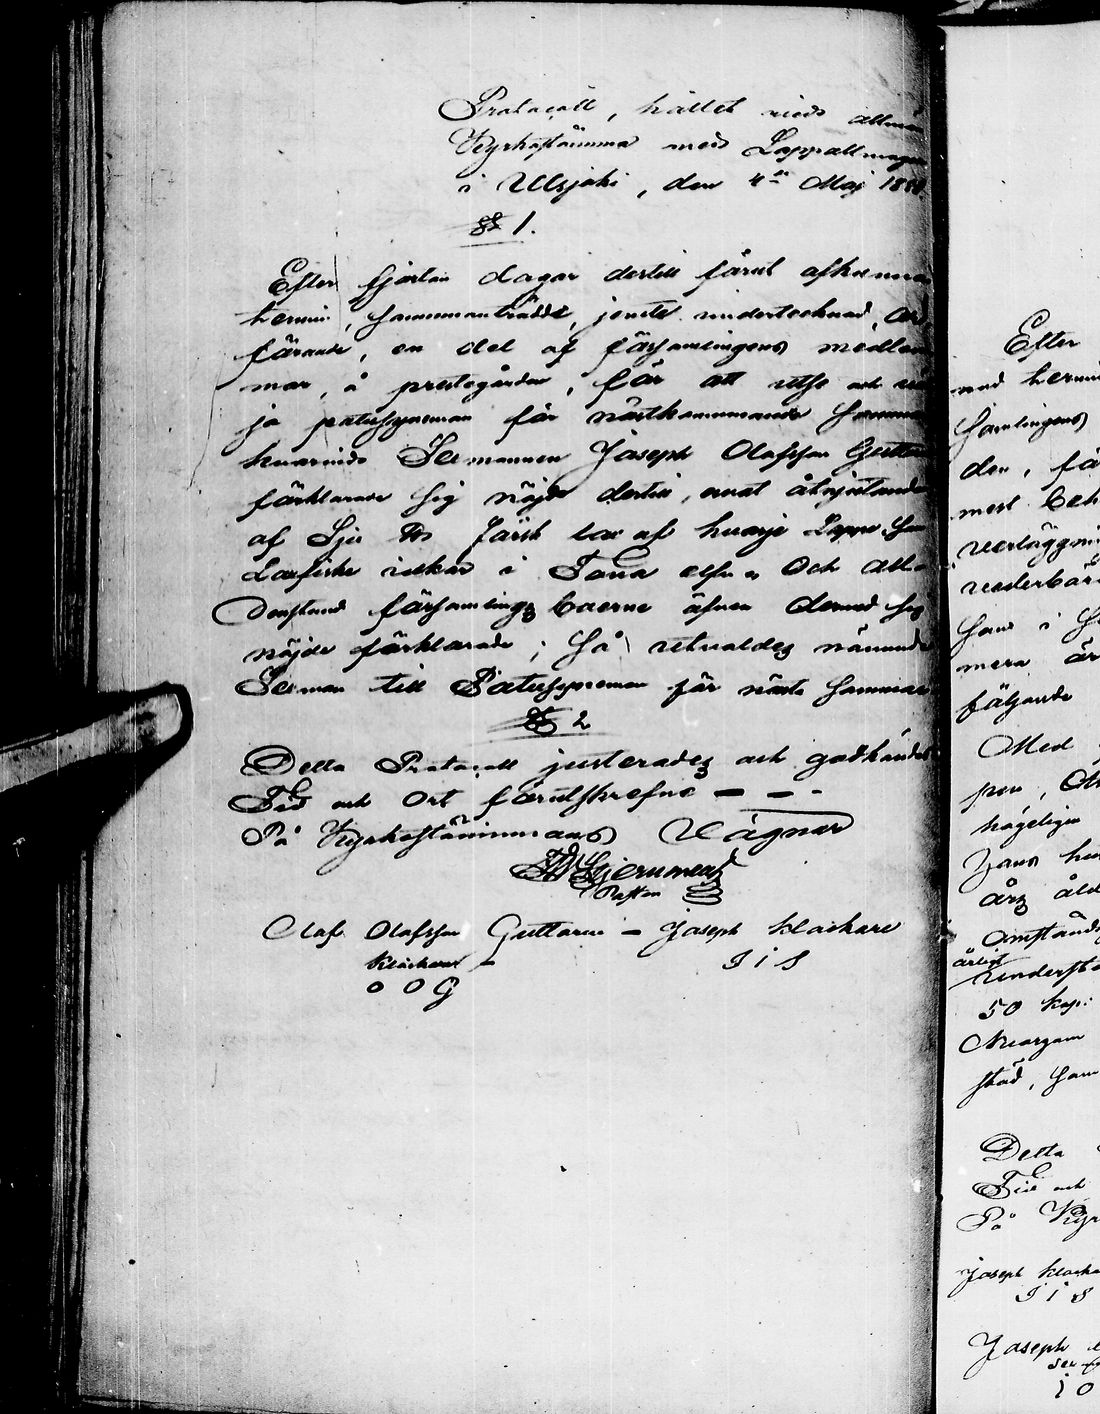 Protocoll, hållet vid allmän
Kyrkostämma med Lappallmogen
i Utsjoki, den 4de Maj 188
§§ 1.
Efter fjorton dagar dertill förut afkunnad
termin, sammanträdde, jemte undertecknad, Ord
förande, en del af församlingens medlem
mar, å prestgården, för att utse och väl
ja patusyneman för nästkommande sommar
hvarvid Sexmannen Joseph Olofsson Guttorm
förklarade sig nöjd dertill, emot åtnjutande
af Sju ℔ färsk lax af hvarje Lapp, som
Laxfiske idkar i Tana elfv. Och all
denstund församlings boerne äfven dermed sig
nöjde förklarade; så utvaldes nämnde
Sexman till Patusyneman för nästa sommar
§ 2
Detta Protocoll justerades och godkändes
Tid och Ort förutskrefne — — -
På Kyrkostämmans Vägnar
Stjerncreutz
Pastor
Olof Olofsson Guttorm – Joseph Klockare
Klockare – J i S
O O G
Efter
nad termin
samlingens
den, fö
mest
sow i
mera är
följande
Med
hans
års åld
omständ
årligt
understö
50 kop:
stöd, som
Detta
Tid och
På Kyr
Joseph Klocka
J i S
Joseph
i O